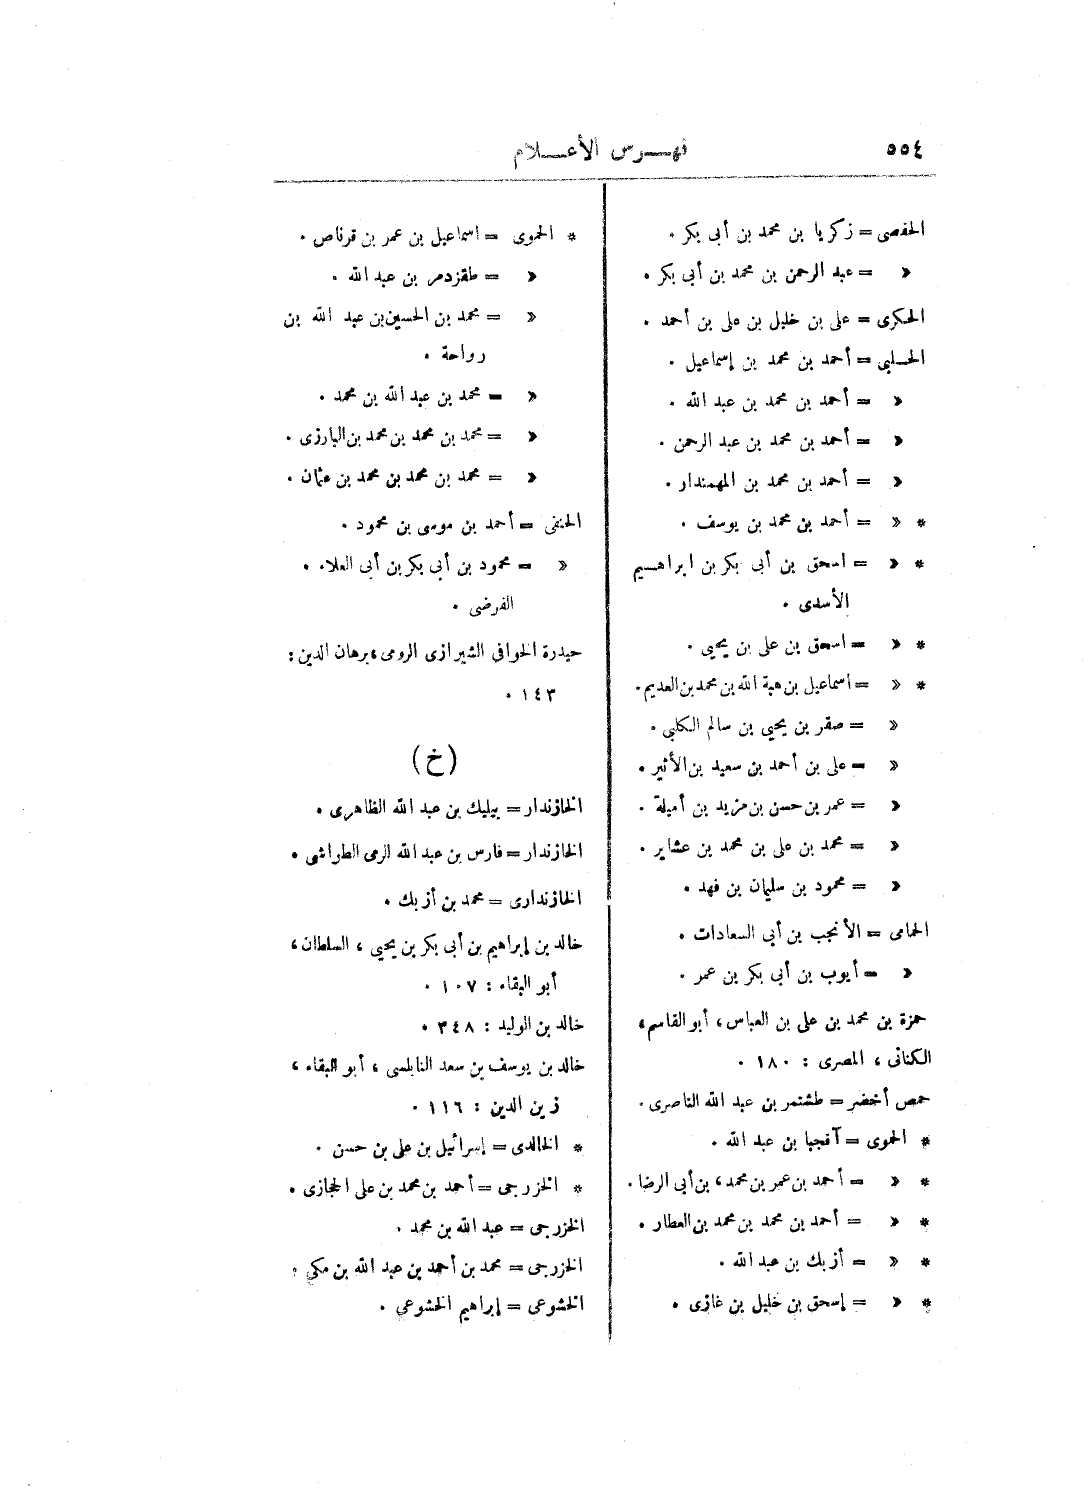 ٥٥٤
فهـــرس الأعـــلام
الحفصى = زكريا بن محمد بن أبى بكر .
« = عبد الرحمن بن محمد بن أبى بكر .
الحكرى = على بن خليل بن على بن أحمد .
الحلبى = أحمد بن محمد بن إسماعيل .
« = أحمد بن محمد بن عبد الله .
« = أحمد بن محمد بن عبد الرحمن .
« = أحمد بن محمد بن المهمندار .
* « = أحمد بن محمد بن يوسف .
* « = اسحق بن أبى بكر بن ابراهـيم
الأسدى .
* « = اسحق بن على بن يحيى .
* « = اسماعيل بن هبة الله بن محمد بن العديم .
« = صقر بن يحيى بن سالم الكلبى .
« = على بن أحمد بن سعيد بن الأثير .
« = عمر بن حسن بن مزيد بن أميلة .
« = محمد بن على بن محمد بن عشاير .
« = محمود بن سليمان بن فهد .
الحمامى = الأنجب بن أبى السعادات .
« = أيوب بن أبى بكر بن عمر .
حمزة بن محمد بن على بن العباس، أبو القاسم،
الكنانى ، المصرى : ١٨٠ .
حمص أخضر = طشتمر بن عبد الله الناصرى .
* الحموى = آقجبا بن عبد الله .
* « = أحمد بن عمر بن محمد، بن أبى الرضا .
* « = أحمد بن محمد بن محمد بن العطار .
* « = أزبك بن عبد الله .
* « = إسحق بن خليل بن غازى .
* الحموى = اسماعيل بن عمر بن قرناص .
« = طقزدمر بن عبد الله .
« = محمد بن الحسين بن عبد الله بن
رواحة .
« = محمد بن عبد الله بن محمد .
« = محمد بن محمد بن محمد بن البارزى .
« = محمد بن محمد بن محمد بن عثمان .
الحنفى = أحمد بن موسى بن محمود .
« = محمود بن أبى بكر بن أبى العلاء .
الفرضى .
حيدرة الخوافى الشيرازى الرومى، برهان الدين :
١٤٣ .
(خ)
الخازندار = بيليك بن عبد الله الظاهرى .
الخازندار = فارس بن عبد الله الرمى الطواشى .
الخازندارى = محمد بن أزبك .
خالد بن إبراهيم بن أبى بكر بن يحيى ، السلطان،
أبو البقاء : ١٠٧ .
خالد بن الوليد : ٣٤٨ .
خالد بن يوسف بن سعد النابلسى ، أبو البقاء ،
زين الدين : ١١٦ .
* الخالدى = إسرائيل بن على بن حسن .
* الخزرجى = أحمد بن محمد بن على الحجازى .
الخزرجى = عبد الله بن محمد .
الخزرجى = محمد بن أحمد بن عبد الله بن مكى .
الخشوعى = إبراهيم الخشوعى .